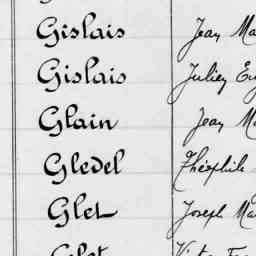 Gislais Jean Ma
Gislais Julien Eug
Glain Jean M
Gledel Théophile
Glet Joseph Ma
Glet Victor